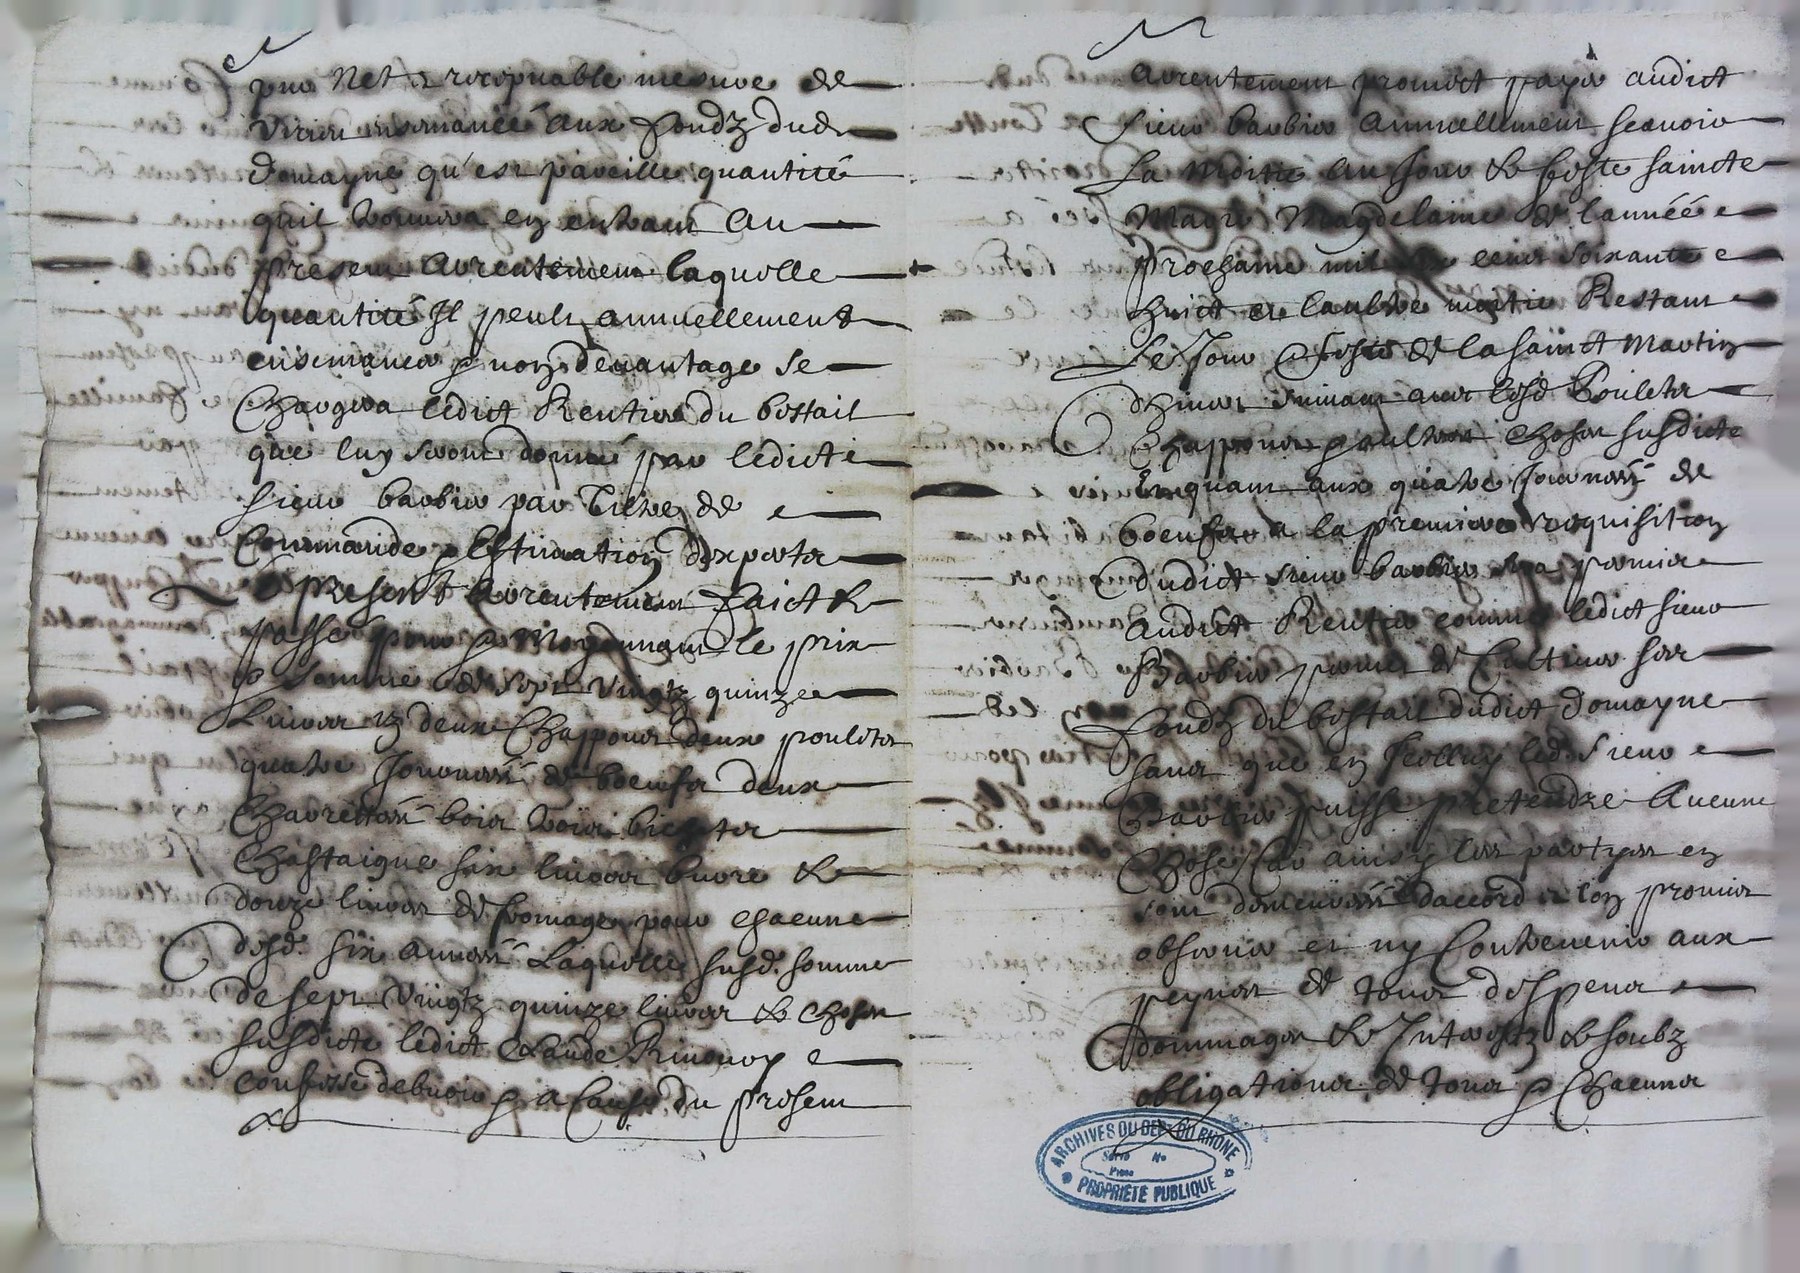 pur Net & recepvable mesure de
Virieu ensemancé aux fondz dud.
domayne qu'est pareille quantité
quil trouvera en entrant au
present arrentement laquelle
quantité Il peult annuellement
ensemancer & non davantage se
Chargera ledict Rentier du bestail
que luy seront donné par ledict
sieur barbier par Tiltre de
Commande & Estimation d'expertz
Le present arrentement faict &
passé pour & Moyennant le prix
& somme de sept vingtz quinze
Livres & deux Chappons deux pouletz
quatre Journees de boeufz deux
Charrettees bois trois bichetz
Chastaigne six livres burre &
douze livres de fromage pour chacune
desd. six annees Laquelle susd. somme
de sept vingtz quinze livres & choses
susdicte ledict Claude
confesse debvoir & a Cause du present
arrentement promect payer audict
sieur barbier Annuellement scavoir
La Moitie au Jour & feste saincte
Marie Magdelaine de l'année
prochaine mil six cens soixante
huict et l'aultre moitie Restant
Le Jour & feste de la sainct Martin
dhiver suivant avec lesd Pouletz
Chappons & aultres choses susdicte
Enquant aux quatre Journees de
boeufz a la premiere requisition
dudict sieur barbier sera permis
audict Rentier comme ledict sieur
Barbier permet de Cultiver ses
fondz du bestail dudict domayne
sans que en Icelluy led. sieur
Barbier puisse pretendre Aucune
Chose Car ainsy les partyes en
sont demeurees d'accord & l'on promis
observer et ny Contrevenir aux
peynes de tous despens
dommages & Interestz & soubz
obligations de tous & Chacuns
ARCHIVES DU DEPt DU RHONE
Serie No
Piece
PROPRIETE PUBLIQUE